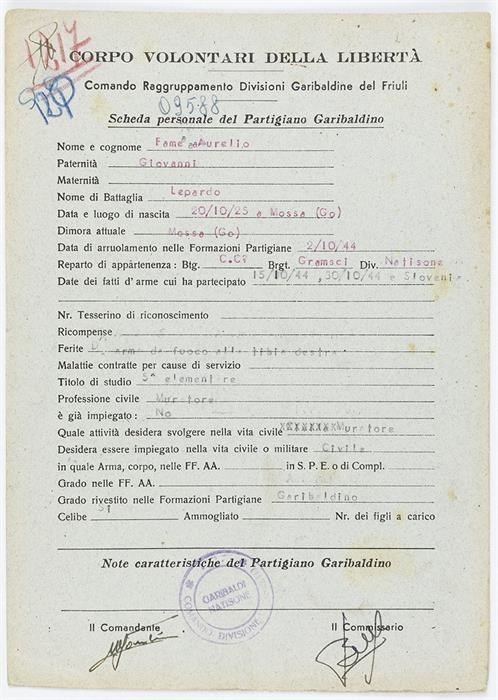 CORPO VOLONTARI DELLA LIBERTÀ
Comando Raggruppamento Divisioni Garibaldine del Friuli
09588
Scheda personale del Partigiano Garibaldino
Nome e cognome Fame Aurelio
Paternità Giovanni
Maternità
Nome di Battaglia Lepardo
Data e luogo di nascita 20/10/25 a Mossa (Go)
Dimora attuale Mossa (Go)
Data di arruolamento nelle Formazioni Partigiane 2/10/44
Reparto di appartenenza: Btg. C.C? Brgt. Gramsci Div. Natisone
Date dei fatti d'arme cui ha partecipato 15/10/44, 30/10/44 e Slovenia
Nr. Tesserino di riconoscimento
Ricompense
Ferite D'arma da fuoco alla tibia destra
Malattie contratte per cause di servizio
Titolo di studio 5ª elementire
Professione civile Muratore
è già impiegato: No
Quale attività desidera svolgere nella vita civile Muratore
Desidera essere impiegato nella vita civile o militare Civile
in quale Arma, corpo, nelle FF. AA. in S. P. E. o di Compl.
Grado nelle FF. AA.
Grado rivestito nelle Formazioni Partigiane Garibaldino
Celibe Si Ammogliato Nr. dei figli a carico
Note caratteristiche del Partigiano Garibaldino
GARIBALDI
NATISONE
COMANDO DIVISIONE
Il Comandante Il Commissario